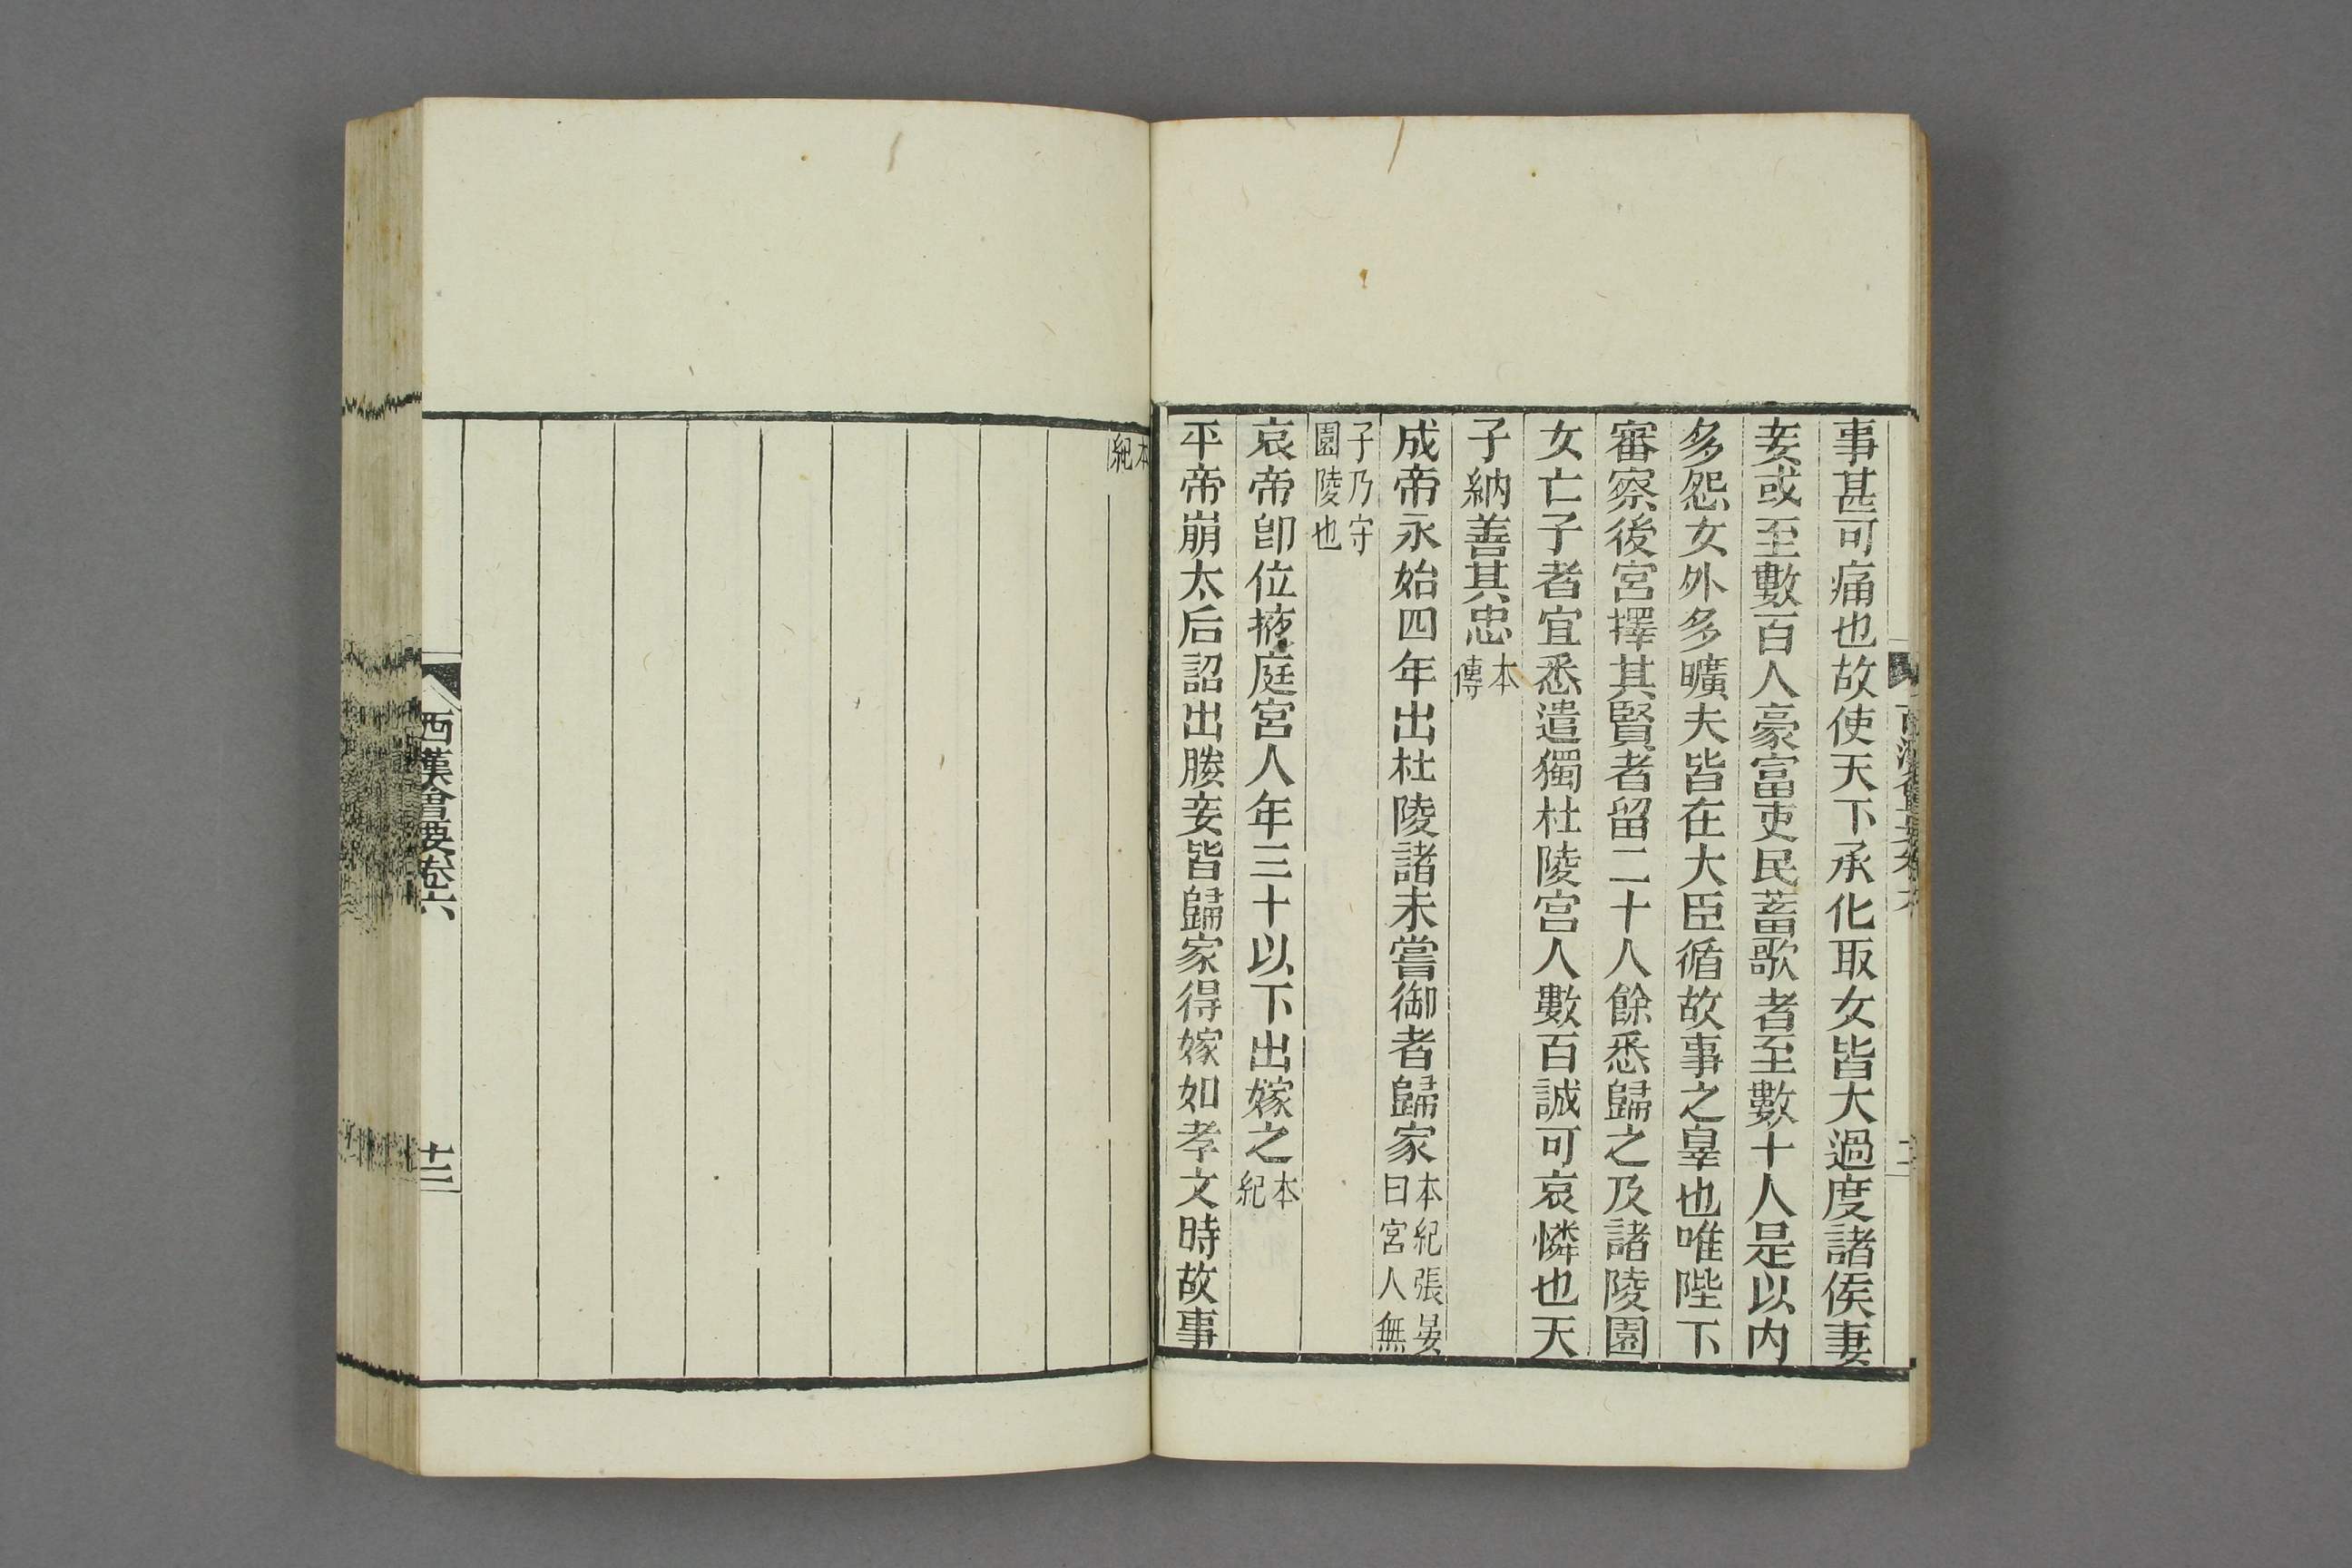 事甚可痛也故使天下承化取女皆大過度諸侯妻
妾或至數百人豪富吏民蓄歌者至數十人是以內
多怨女外多曠夫皆在大臣循故事之辠也唯陛下
審察後宮擇其賢者留二十人餘悉歸之及諸陵園
女亡子者宜悉遣獨杜陵宮人數百誠可哀憐也天
子納善其忠本傳
成帝永始四年出杜陵諸未嘗御者歸家本紀張晏曰宮人無
子乃守園陵也
哀帝卽位掖庭宮人年三十以下出嫁之本紀
平帝崩太后詔出媵妾皆歸家得嫁如孝文時故事
本紀
西漢會要卷六
十二